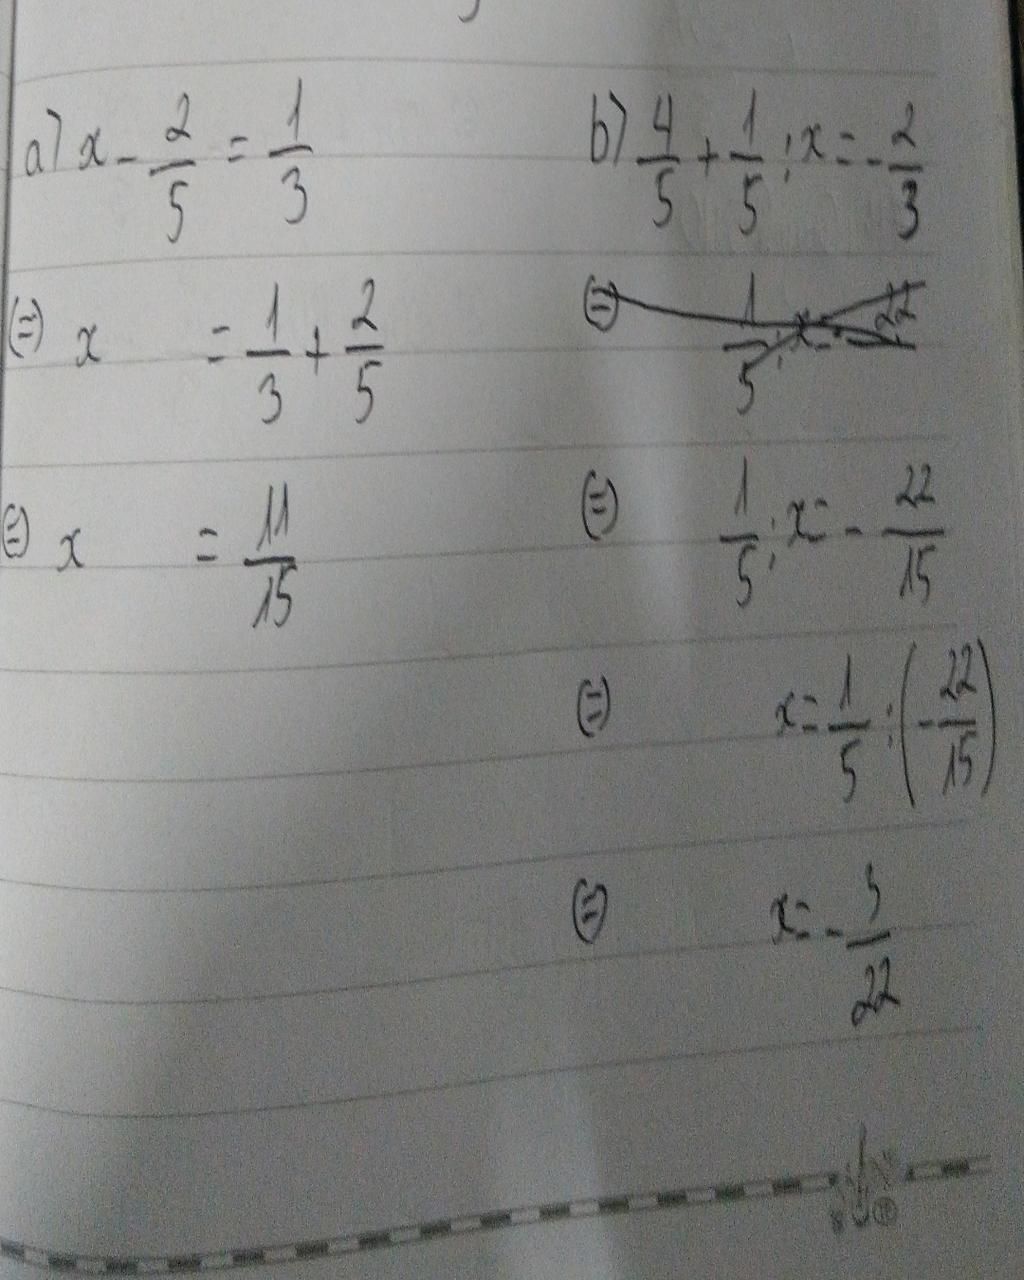 a) x - 2/5 = 1/3
(=) x = 1/3 + 2/5
(=) x = 11/15
b) 4/5 + 1/5 : x = - 2/3
(=) 1/5 : x = - 22
(=) 1/5 : x = - 22/15
(=) x = 1/5 : (- 22/15)
(=) x = - 3/22